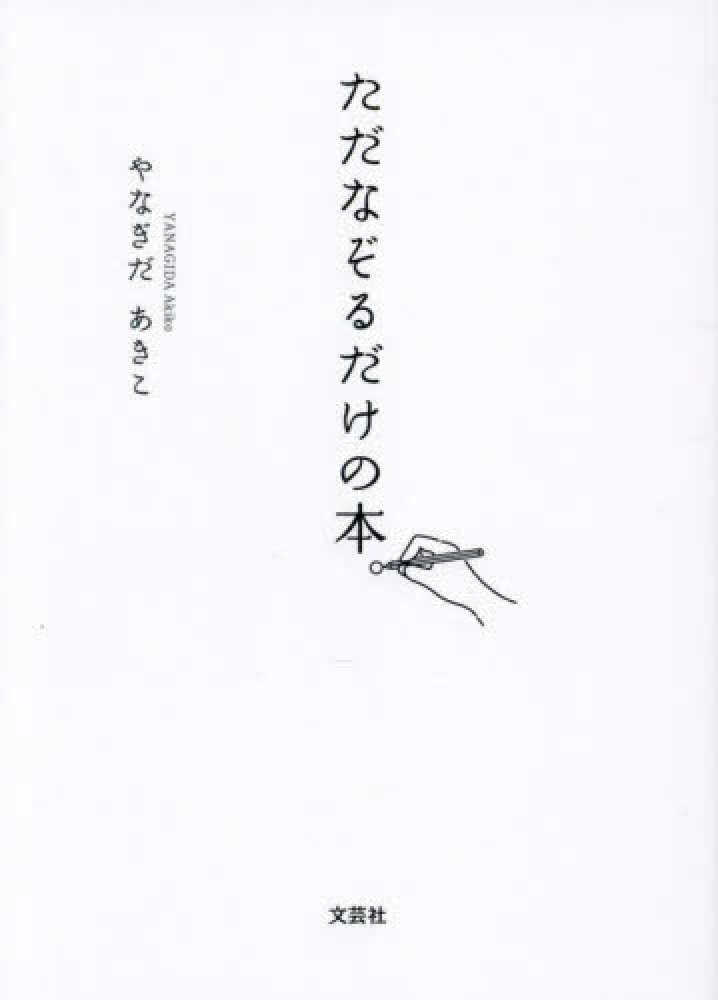 ただなぞるだけの本。
YANAGIDA Akiko
やなぎだ あきこ
文芸社